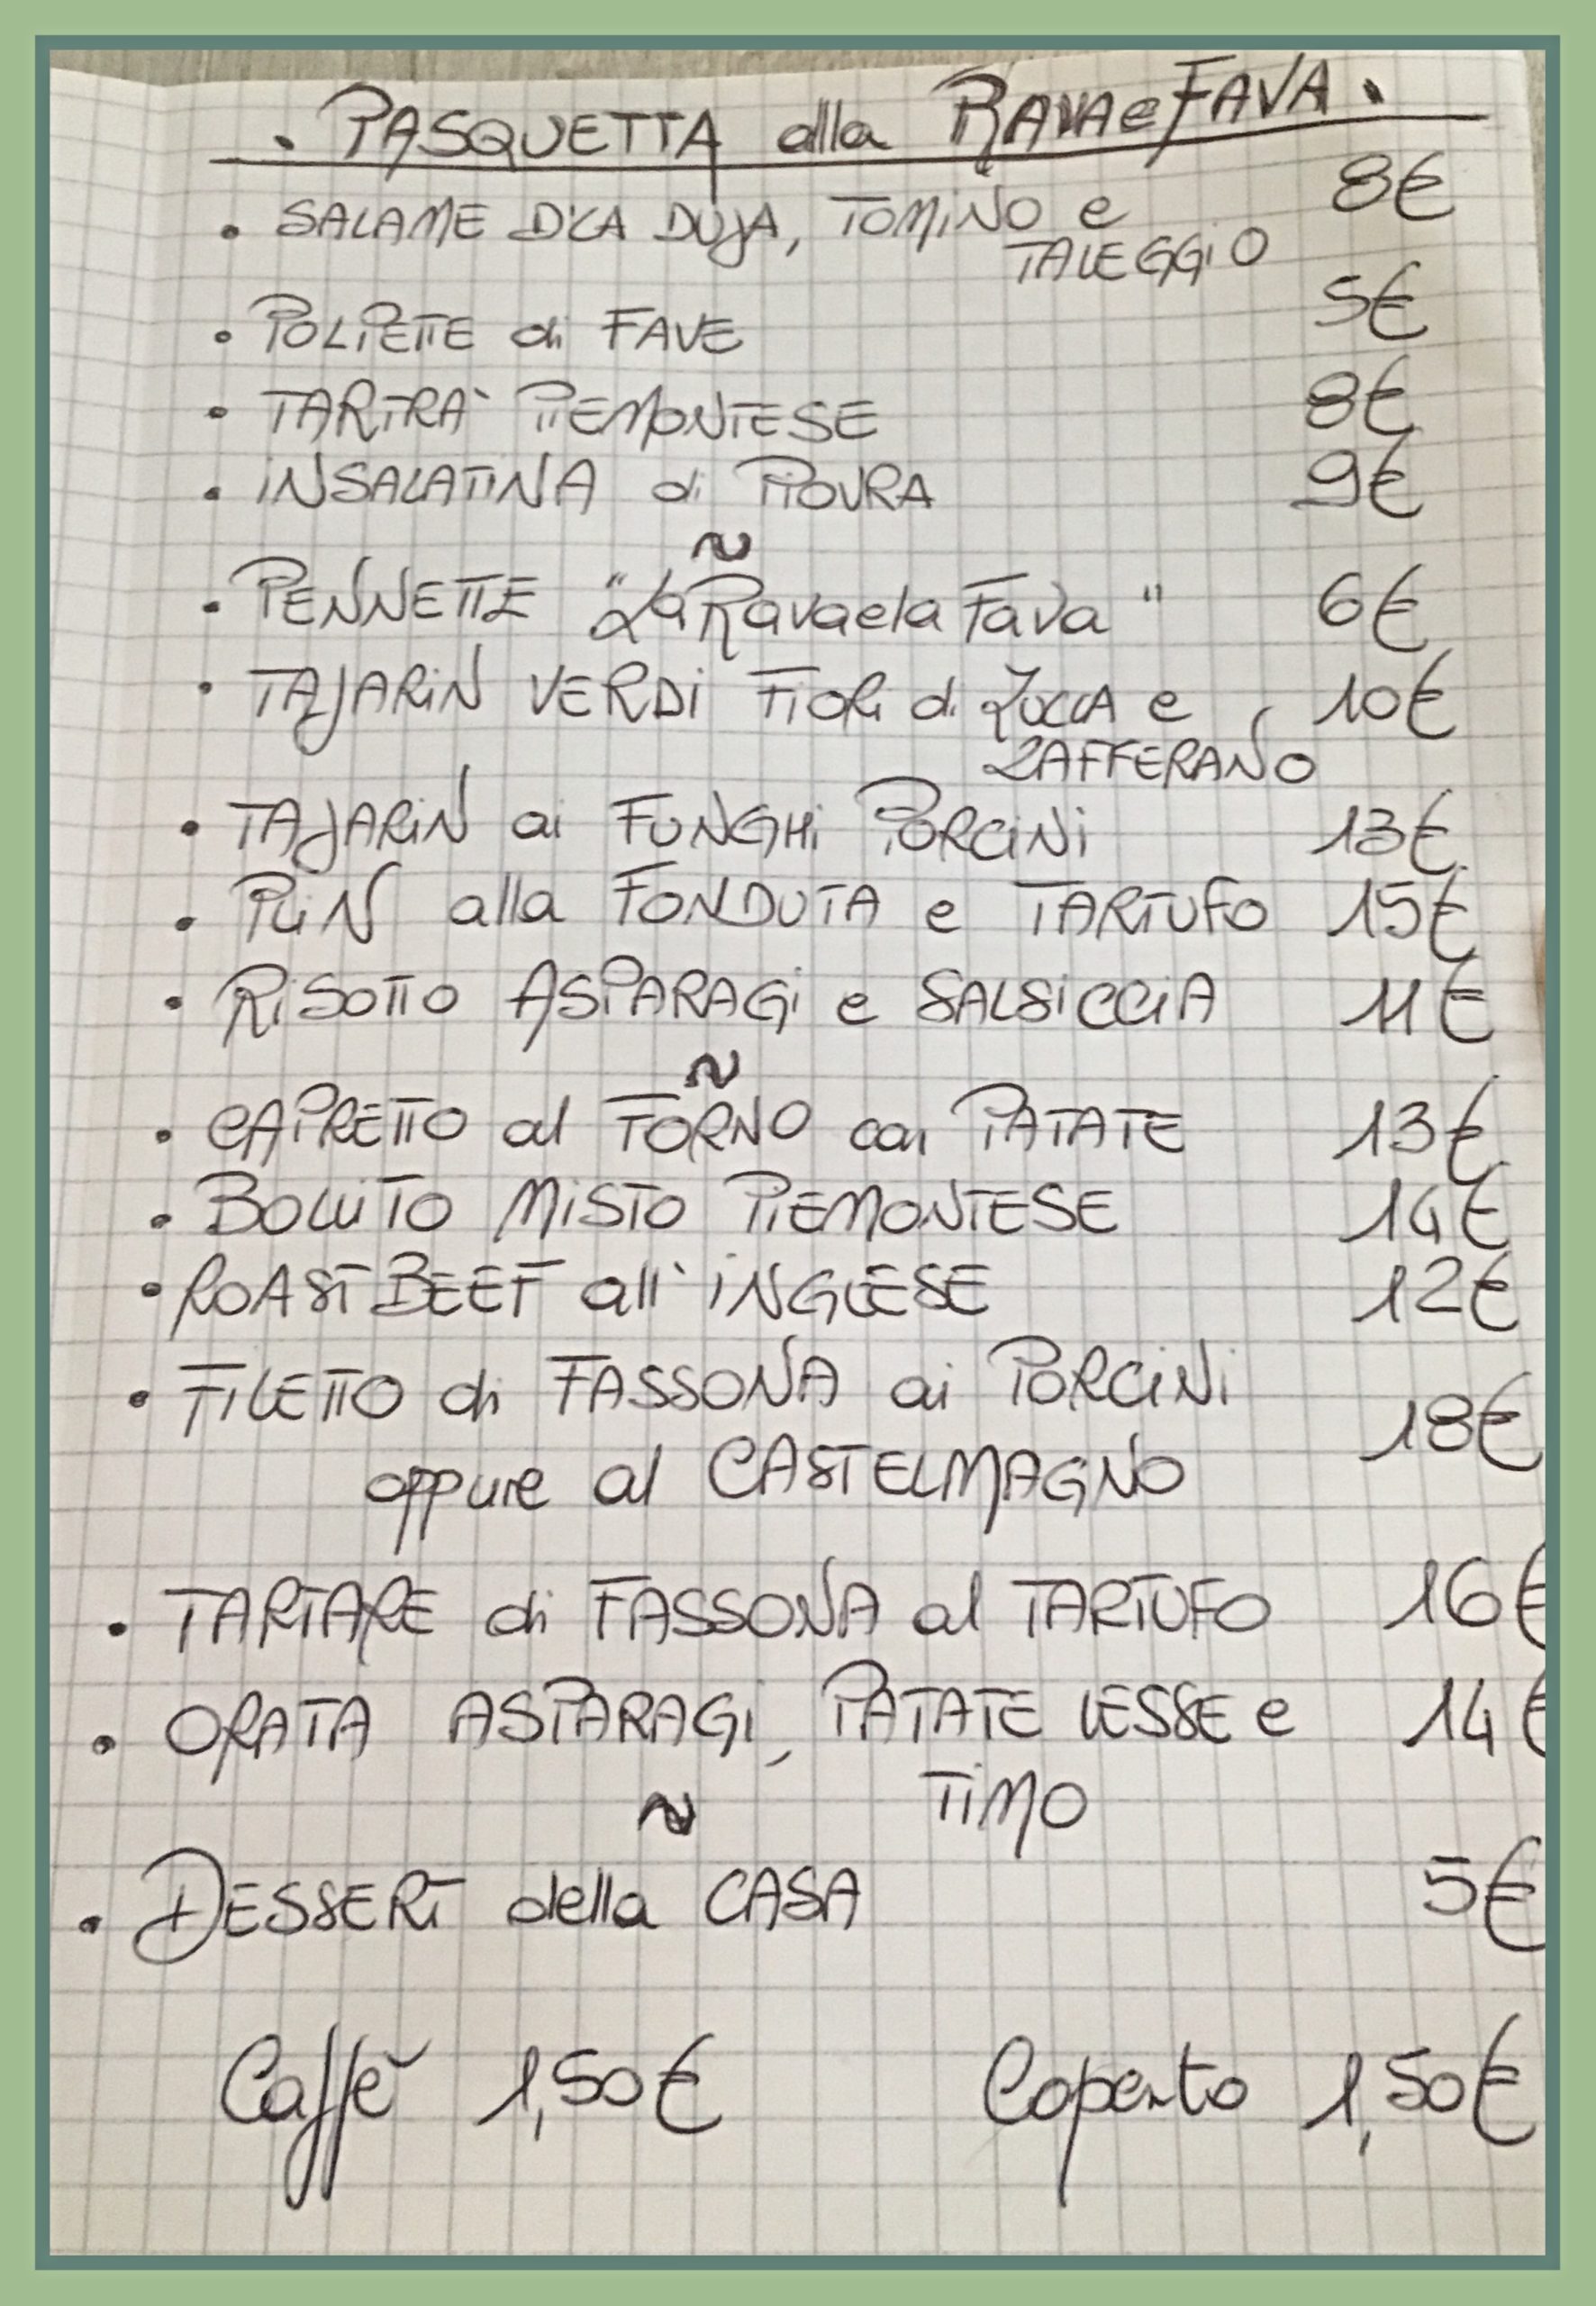 . PASQUETTA alla RAVA e FAVA .
. SALAME D'LA DUJA, TOMINO e 8€
TALEGGIO
. POLPETTE di FAVE 5€
. TARTRA' PIEMONTESE 8€
. INSALATINA di PIOVRA 9€
~
. PENNETTE "La Ravaela Fava" 6€
. TAJARIN VERDI FIORI di ZUCCA e 10€
ZAFFERANO
. TAJARIN ai FUNGHI PORCINI 13€
. PLIN alla FONDUTA e TARTUFO 15€
. RISOTTO ASPARAGI e SALSICCIA 11€
~
. CAPRETTO al FORNO con PATATE 13€
. BOLLITO MISTO PIEMONTESE 14€
. ROAST BEEF all'INGLESE 12€
. FILETTO di FASSONA ai PORCINI
oppure al CASTELMAGNO 18€
. TARTARE di FASSONA al TARTUFO 16€
. ORATA ASPARAGI, PATATE LESSE e 14€
TIMO
~
. DESSERT della CASA 5€
Caffè 1,50€ Coperto 1,50€